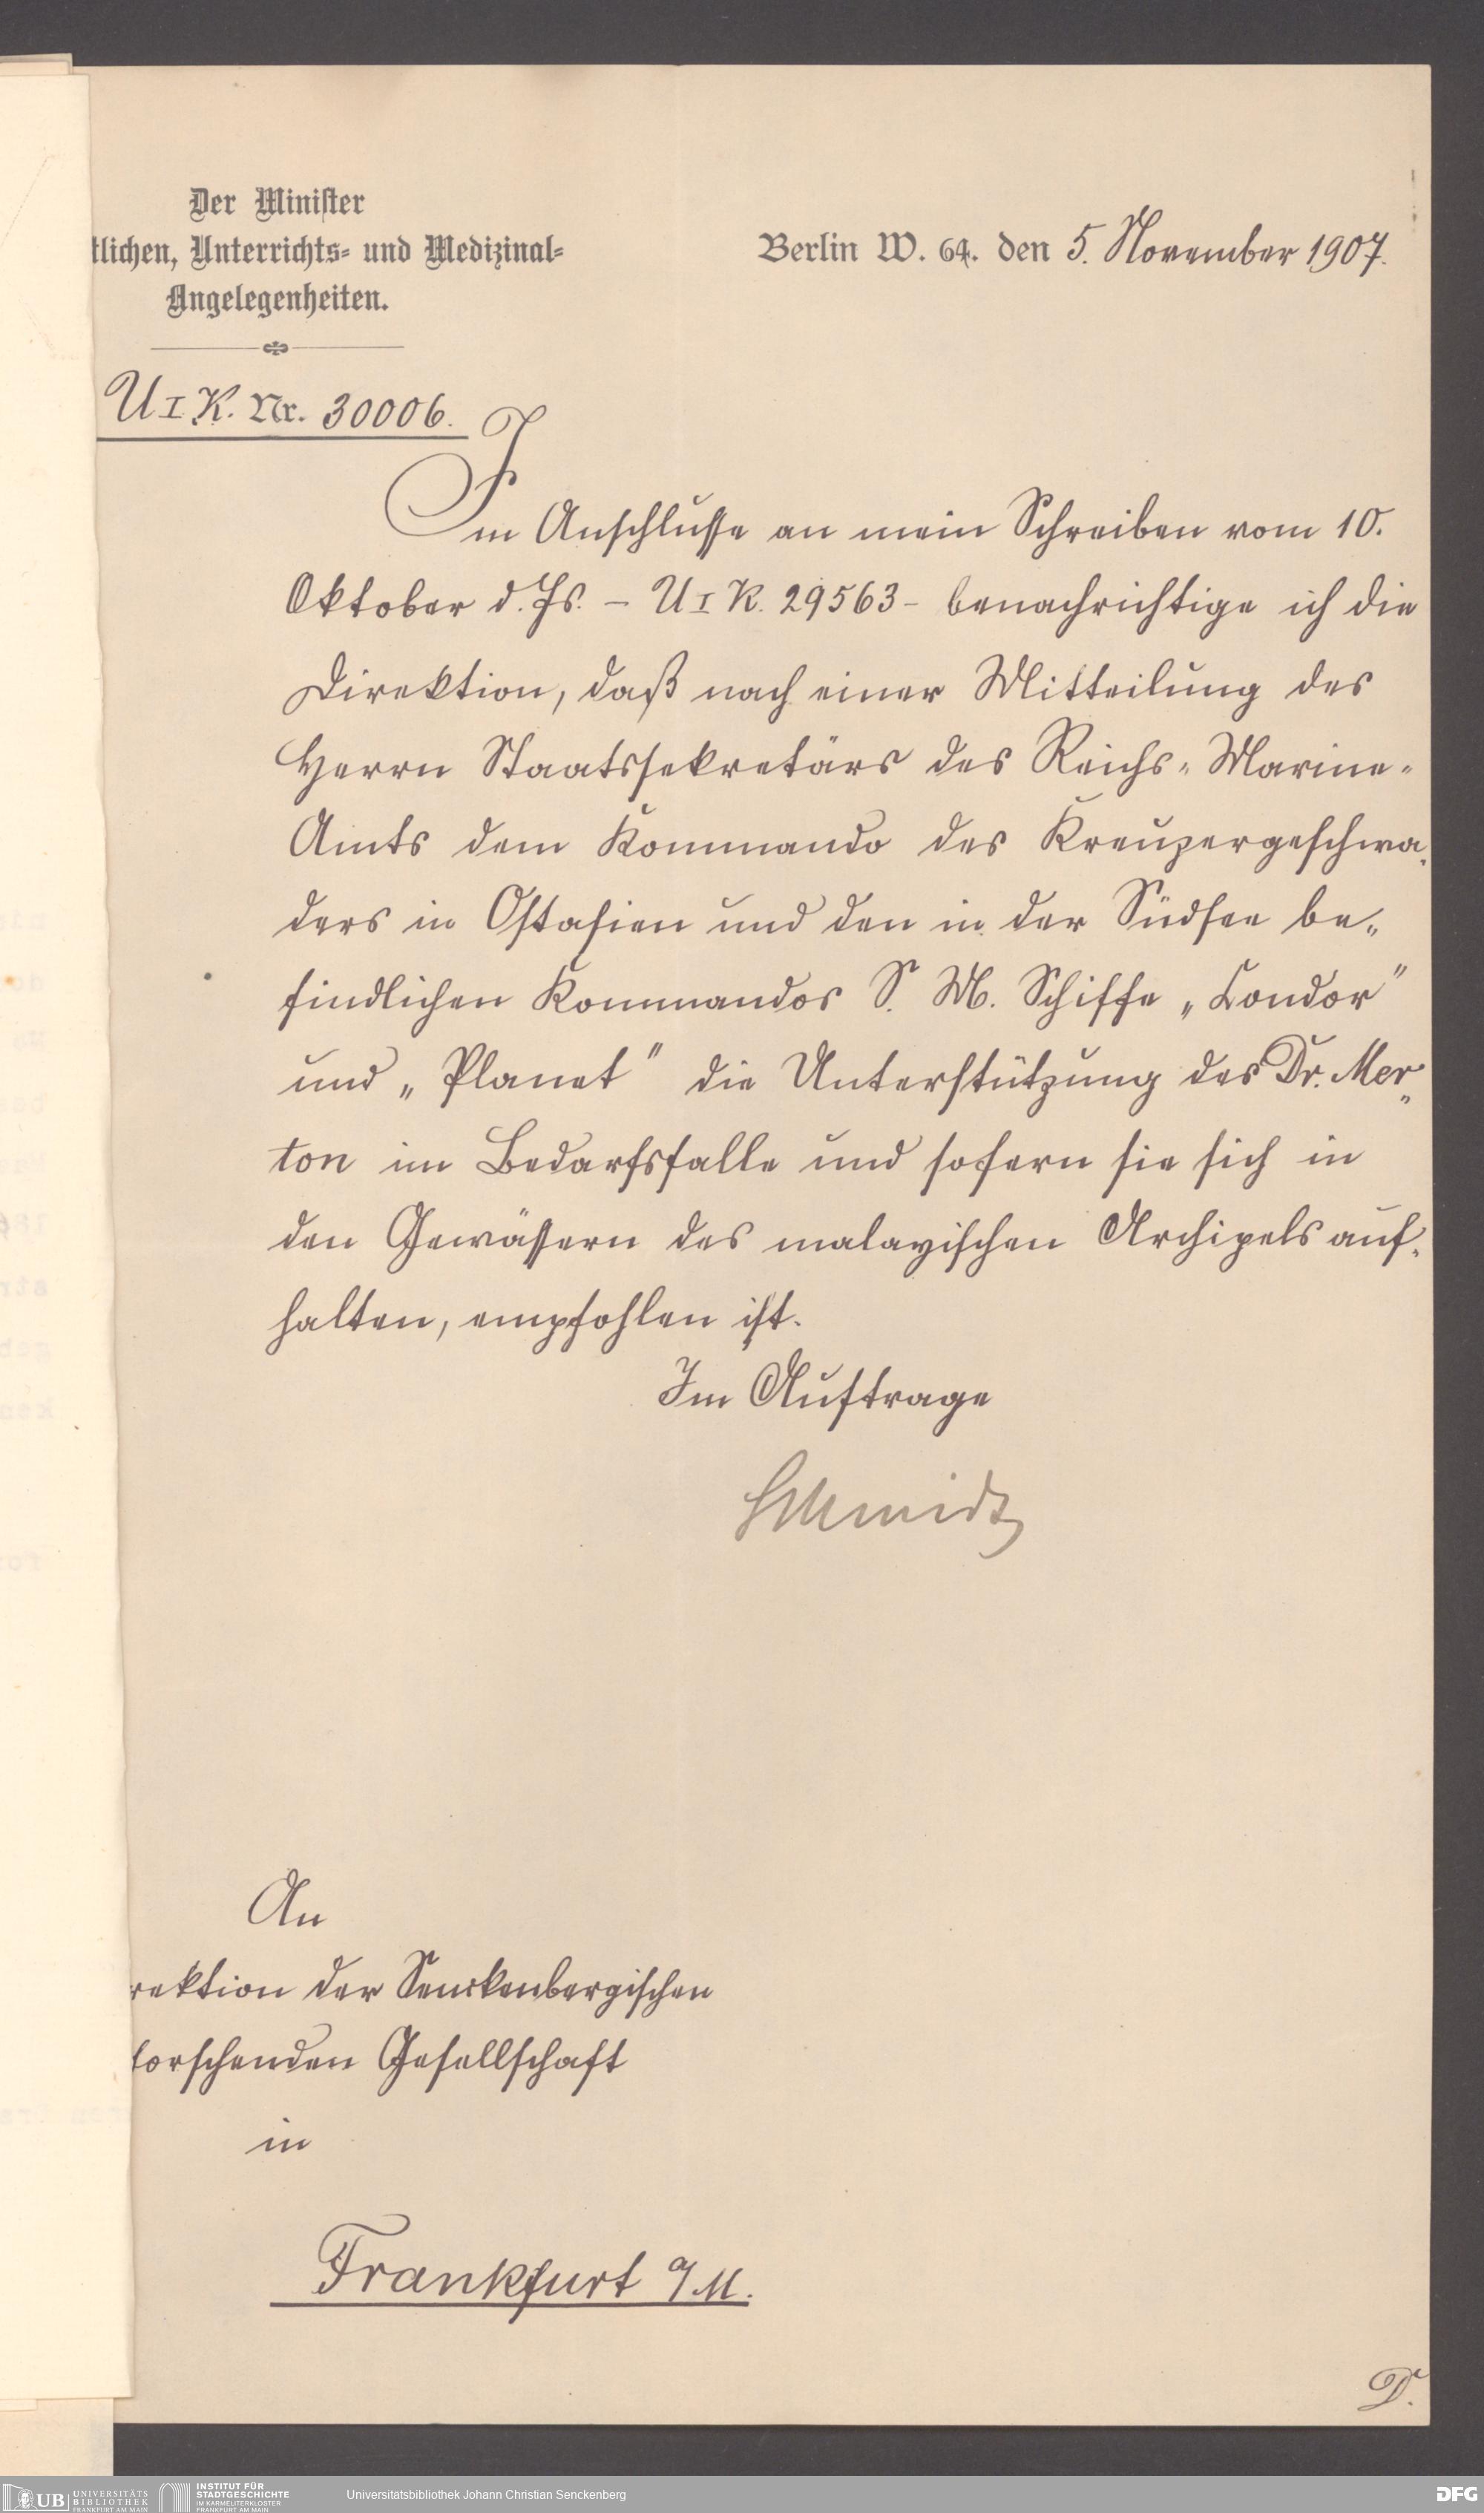 Der Minister
tlichen, Unterrichts- und Medizinal-
Angelegenheiten.
Berlin W. 64. den 5. November 1907.
U I K. Nr. 30006.
Im Anschlusse an mein Schreiben vom 10.
Oktober d. Js. – U I K. 29563 – benachrichtige ich die
Direktion, daß nach einer Mitteilung des
Herrn Staatssekretärs des Reichs-Marine-
Amts dem Kommando des Kreuzergeschwa-
ders in Ostasien und den in der Südsee be-
findlichen Kommandos S. M. Schiffe „Condor"
und „Planet" die Unterstützung des Dr. Mer-
ton im Bedarfsfalle und sofern sie sich in
den Gewässern des malayischen Archipels auf-
halten, empfohlen ist.
Im Auftrage
Schmidt
An
rektion der Senckenbergischen
forschenden Gesellschaft
in
Frankfurt a/M.
D.
UB UNIVERSITÄTS BIBLIOTHEK FRANKFURT AM MAIN
INSTITUT FÜR STADTGESCHICHTE IM KARMELITERKLOSTER FRANKFURT AM MAIN
Universitätsbibliothek Johann Christian Senckenberg
DFG